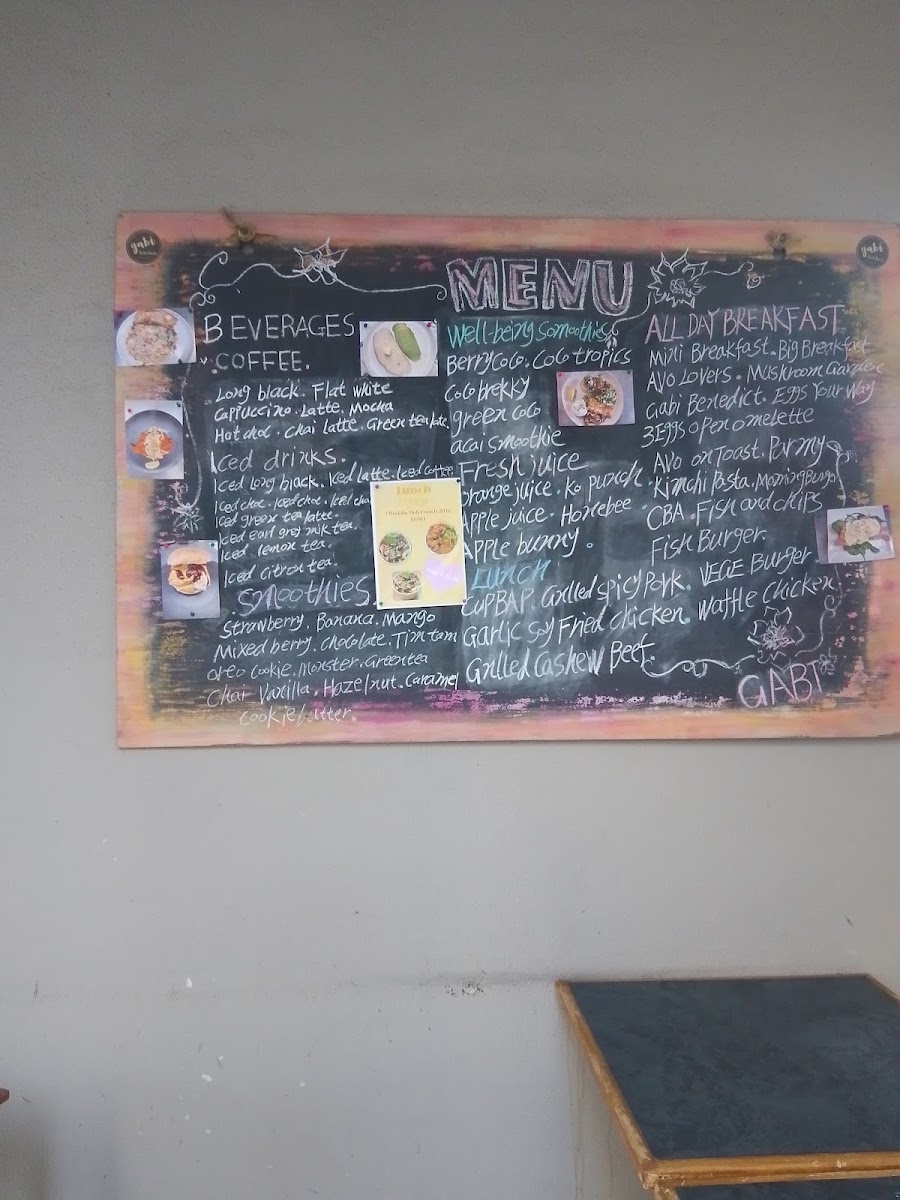 gabi
gabi
MENU
BEVERAGES
COFFEE.
Long black. Flat white
Cappuccino. Latte. Mocha
Hot choc. Chai latte. Green tea latte
Iced drinks.
Iced long black. Iced latte. Iced coffee
Iced choc. Iced choc. Iced chai
Iced green tea latte.
Iced earl grey milk tea.
Iced lemon tea.
Iced citron tea.
Smoothies
Strawberry. Banana. Mango
Mixed berry. chocolate. Tim tam
oreo cookie. Monster. Greentea
Chai Vanilla. Hazelnut. Caramel
cookie butter.
Lunch
Well-being Smoothies
Berry coco. Coco tropics
Coco brekky
green coco
acai smoothie
Fresh juice
orange juice. ko punch
Apple juice. Honebee
Apple bunny.
Lunch
CUPBAP. Grilled spicy Pork. VEGE Burger
Garlic Soy Fried chicken. Waffle Chicken
Grilled Cashew Beef.
ALL DAY BREAKFAST
Mini Breakfast. Big Breakfast
AVO LOVERS. Mushroom Garden
Gabi Benedict. Eggs Your Way
3 Eggs open omelette
AVO on Toast. Parmy
Kimchi Pasta. Morning Burger
CBA. Fish and chips
Fish Burger.
GABI